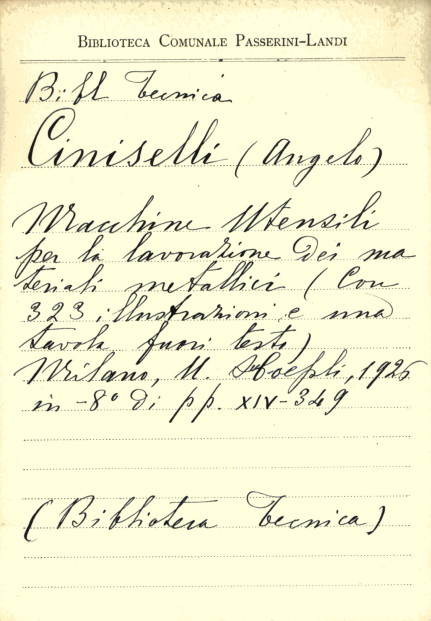 BIBLIOTECA COMUNALE PASSERINI-LANDI
Bibl Tecnica
Ciniselli (Angelo)
Macchine Utensili
per la lavorazione dei ma
teriali metallici (Con
323 illustrazioni e una
tavola fuori testo)
Milano, U. Hoepli, 1926
in -8° di pp. XIV-349
(Biblioteca Tecnica)